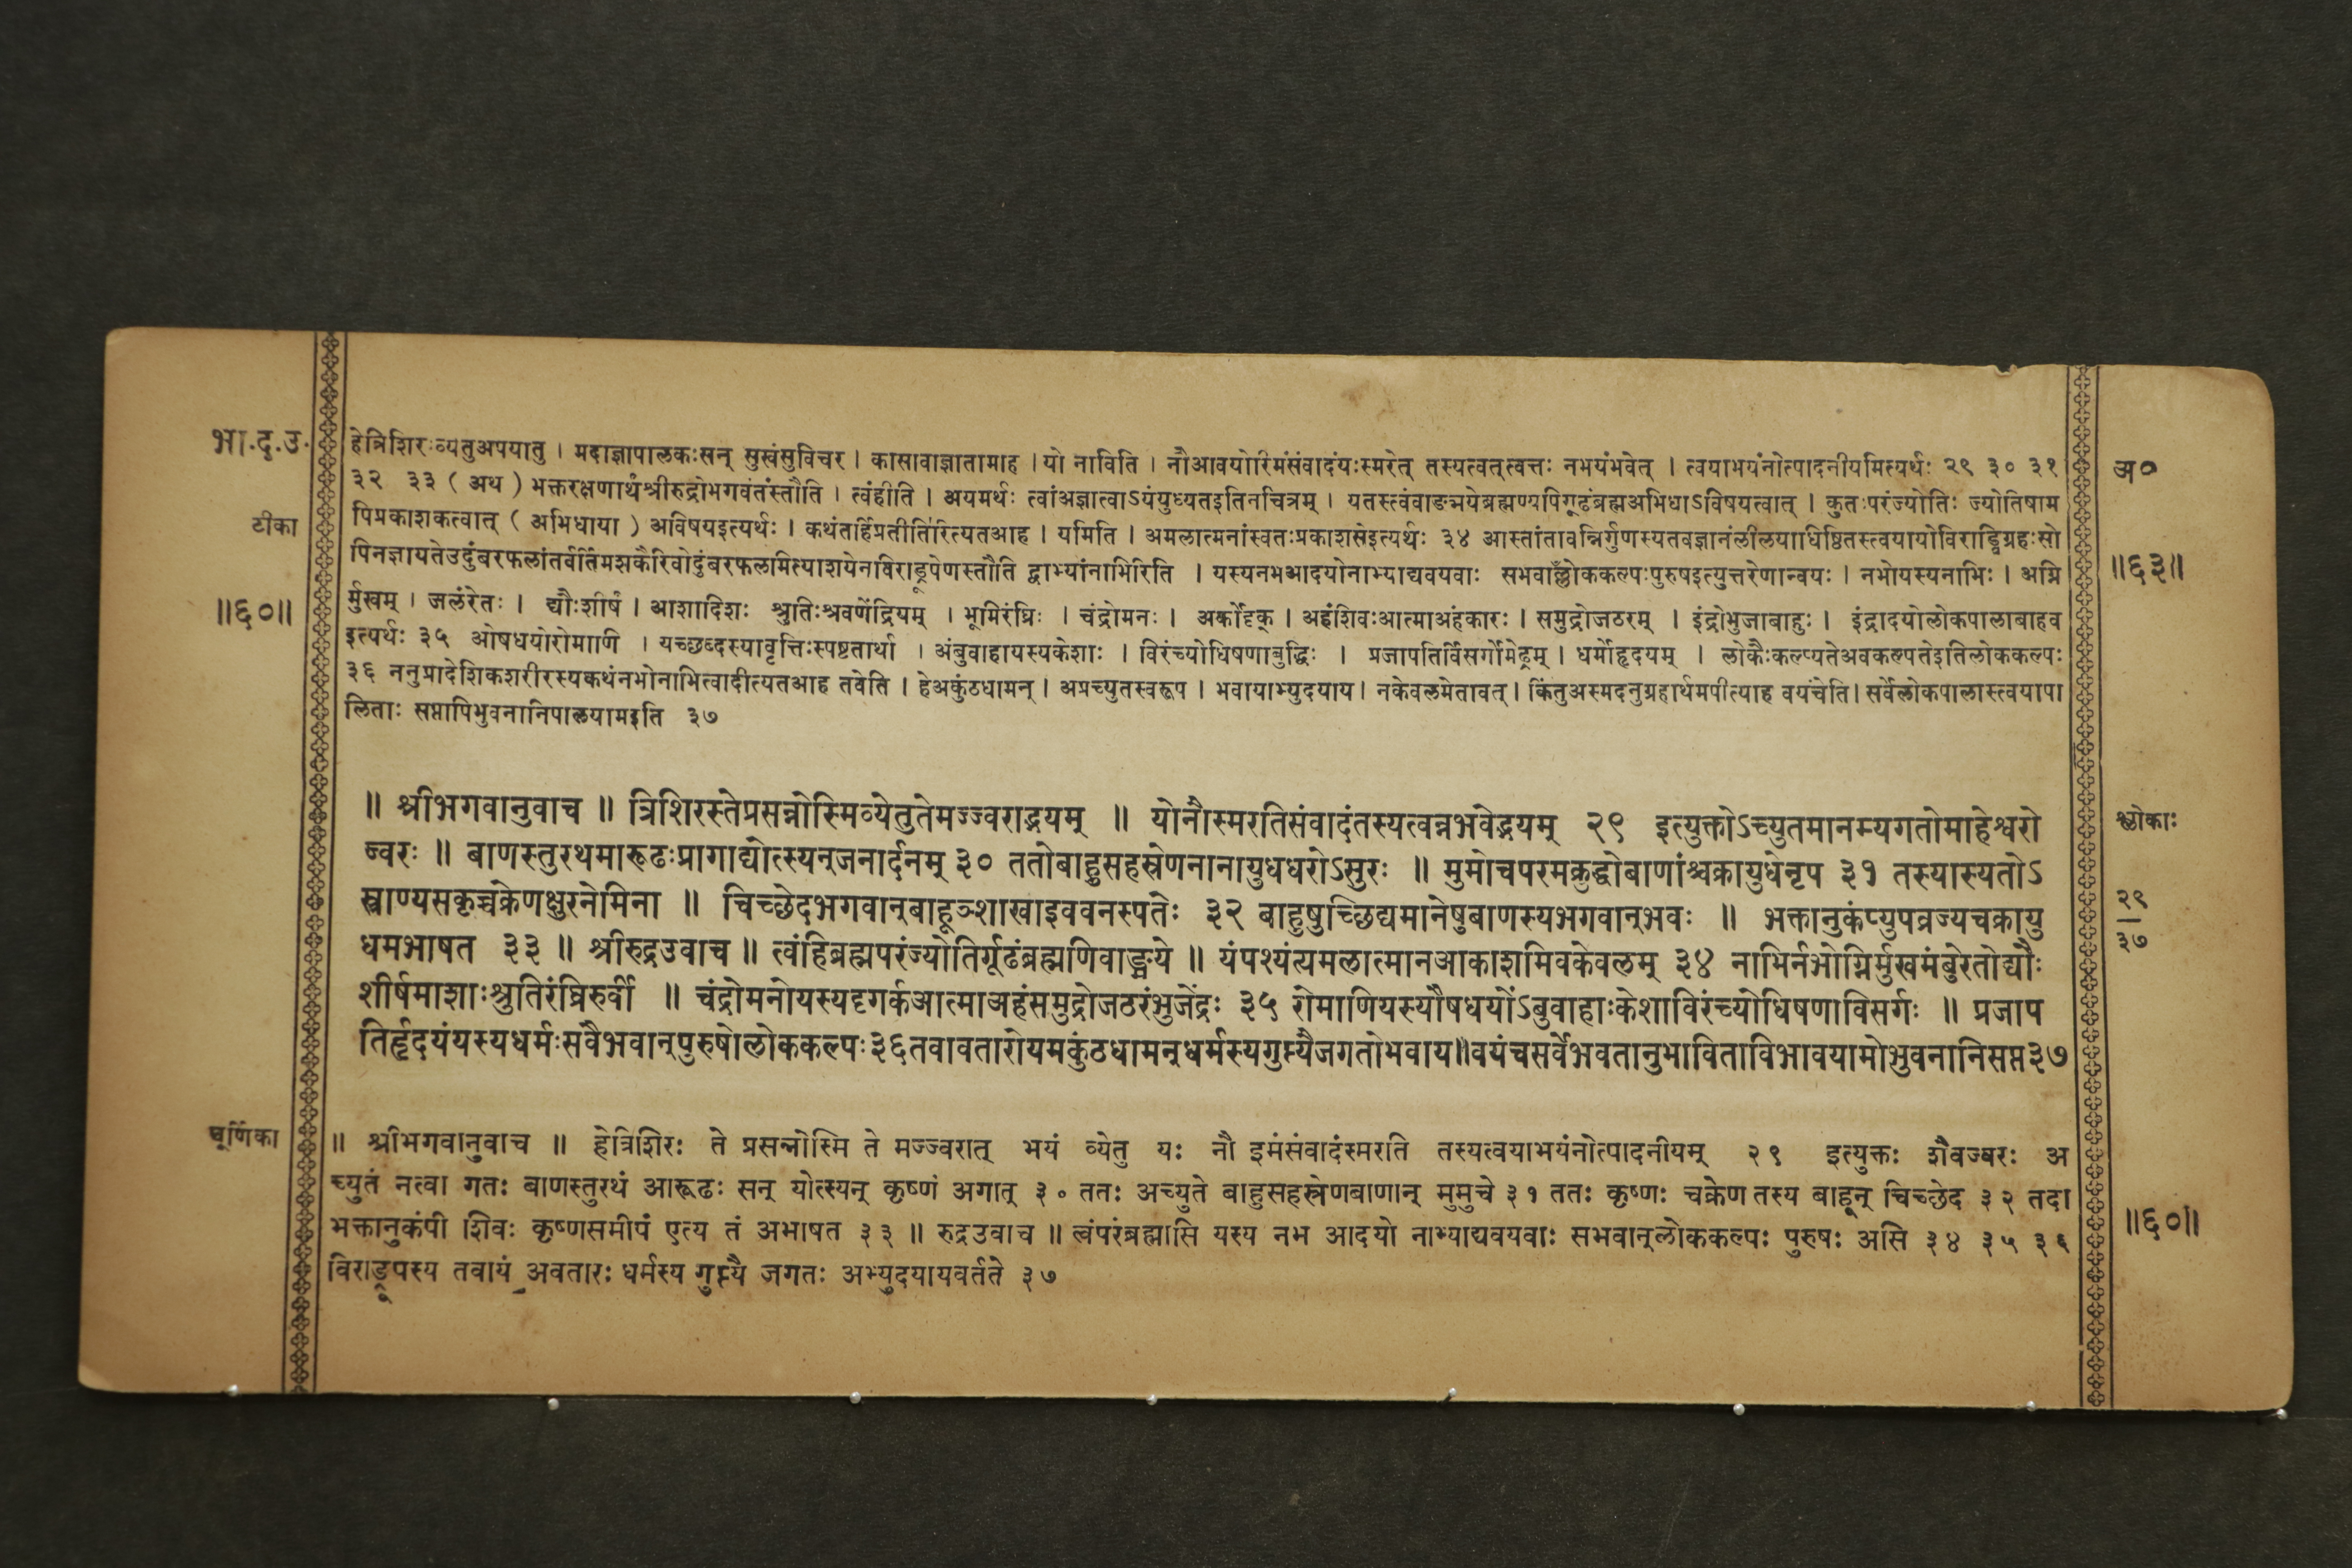 भा.द.उ.
हेत्रिशिरःव्येतुअपयातु । मदाज्ञापालकःसन् सुखंसुविचर । कासावाज्ञातामाह । यो नाविति । नौआवयोरिमंसंवादंयःस्मरेत् तस्यत्वत्त्वत्तः नभयंभवेत् । त्वयाभयंनोत्पादनीयमित्यर्थः २९ ३० ३१
३२ ३३ ( अथ ) भक्तरक्षणार्थंश्रीरुद्रोभगवंतंस्तौति । त्वंहीति । अयमर्थः त्वांअज्ञात्वाऽयंयुध्यतइतिनचित्रम् । यतस्त्वंवाङ्मयेब्रह्मण्यपिगूढंब्रह्मअभिधाऽविषयत्वात् । कुतःपरंज्योतिः ज्योतिषाम
पिप्रकाशकत्वात् ( अभिधाया ) अविषयइत्यर्थः । कथंतर्हिप्रतीतिरित्यतआह । यमिति । अमलात्मनांस्वतःप्रकाशसेइत्यर्थः ३४ आस्तांतावन्निर्गुणस्यतवज्ञानंलीलयाधिष्ठितस्त्वयायोविराड्विग्रहःसो
पिनज्ञायतेउदुंबरफलांतर्वर्तिमशकैरिवोदुंबरफलमित्याशयेनविराड्रूपेणस्तौति द्वाभ्यांनाभिरिति । यस्यनभआदयोनाभ्याद्यवयवाः सभवाँल्लोककल्पःपुरुषइत्युत्तरेणान्वयः । नभोयस्यनाभिः । अग्नि
र्मुखम् । जलंरेतः । द्यौःशीर्षं । आशादिशः श्रुतिःश्रवणेंद्रियम् । भूमिरंघ्रिः । चंद्रोमनः । अर्कोदृक् । अहंशिवःआत्माअहंकारः । समुद्रोजठरम् । इंद्रोभुजाबाहुः । इंद्रादयोलोकपालाबाहव
इत्यर्थः ३५ ओषधयोरोमाणि । यच्छब्दस्यावृत्तिःस्पष्टतार्था । अंबुवाहायस्यकेशाः । विरंच्योधिषणाबुद्धिः । प्रजापतिर्विसर्गोमेढ्रम् । धर्मोहृदयम् । लोकैःकल्प्यतेअवकल्पतेइतिलोककल्पः
३६ ननुप्रादेशिकशरीरस्यकथंनभोनाभित्वादीत्यतआह तवेति । हेअकुंठधामन् । अप्रच्युतस्वरूप । भवायाभ्युदयाय । नकेवलमेतावत् । किंतुअस्मदनुग्रहार्थमपीत्याह वयंचेति । सर्वेलोकपालास्त्वयापा
लिताः सप्तापिभुवनानिपालयामइति ३७
टीका
॥६०॥
अ०
॥६३॥
॥ श्रीभगवानुवाच ॥ त्रिशिरस्तेप्रसन्नोस्मिव्येतुतेमज्ज्वराद्भयम् ॥ योनौस्मरतिसंवादंतस्यत्वन्नभवेद्भयम् २९ इत्युक्तोऽच्युतमानम्यगतोमाहेश्वरो
ज्वरः ॥ बाणस्तुरथमारूढःप्रागाद्योत्स्यन्जनार्दनम् ३० ततोबाहुसहस्रेणनानायुधधरोऽसुरः ॥ मुमोचपरमक्रुद्धोबाणांश्चक्रायुधेनृप ३१ तस्यास्यतोऽ
स्त्राण्यसकृच्चक्रेणक्षुरनेमिना ॥ चिच्छेदभगवान्बाहूञ्शाखाइववनस्पतेः ३२ बाहुषुच्छिद्यमानेषुबाणस्यभगवान्भवः ॥ भक्तानुकंप्युपव्रज्यचक्रायु
धमभाषत ३३ ॥ श्रीरुद्रउवाच ॥ त्वंहिब्रह्मपरंज्योतिर्गूढंब्रह्मणिवाङ्मये ॥ यंपश्यंत्यमलात्मानआकाशमिवकेवलम् ३४ नाभिर्नभोग्निर्मुखमंबुरेतोद्यौः
शीर्षमाशाःश्रुतिरंघ्रिरुर्वी ॥ चंद्रोमनोयस्यदृगर्कआत्माअहंसमुद्रोजठरंभुजेंद्रः ३५ रोमाणियस्यौषधयोंऽबुवाहाःकेशाविरंच्योधिषणाविसर्गः ॥ प्रजाप
तिर्हृदयंयस्यधर्मःसवैभवान्पुरुषोलोककल्पः३६तवावतारोयमकुंठधामन्धर्मस्यगुप्त्यैजगतोभवाय॥वयंचसर्वेभवतानुभाविताविभावयामोभुवनानिसप्त३७
श्लोकाः
२९
३७
चूर्णिका
॥ श्रीभगवानुवाच ॥ हेत्रिशिरः ते प्रसन्नोस्मि ते मज्ज्वरात् भयं व्येतु यः नौ इमंसंवादंस्मरति तस्यत्वयाभयंनोत्पादनीयम् २९ इत्युक्तः शैवज्वरः अ
च्युतं नत्वा गतः बाणस्तुरथं आरूढः सन् योत्स्यन् कृष्णं अगात् ३० ततः अच्युते बाहुसहस्रेणबाणान् मुमुचे ३१ ततः कृष्णः चक्रेण तस्य बाहून् चिच्छेद ३२ तदा
भक्तानुकंपी शिवः कृष्णसमीपं एत्य तं अभाषत ३३ ॥ रुद्रउवाच ॥ त्वंपरंब्रह्मासि यस्य नभ आदयो नाभ्याद्यवयवाः सभवान्लोककल्पः पुरुषः असि ३४ ३५ ३६
विराड्रूपस्य तवायं अवतारः धर्मस्य गुप्त्यै जगतः अभ्युदयायवर्तते ३७
॥६०॥